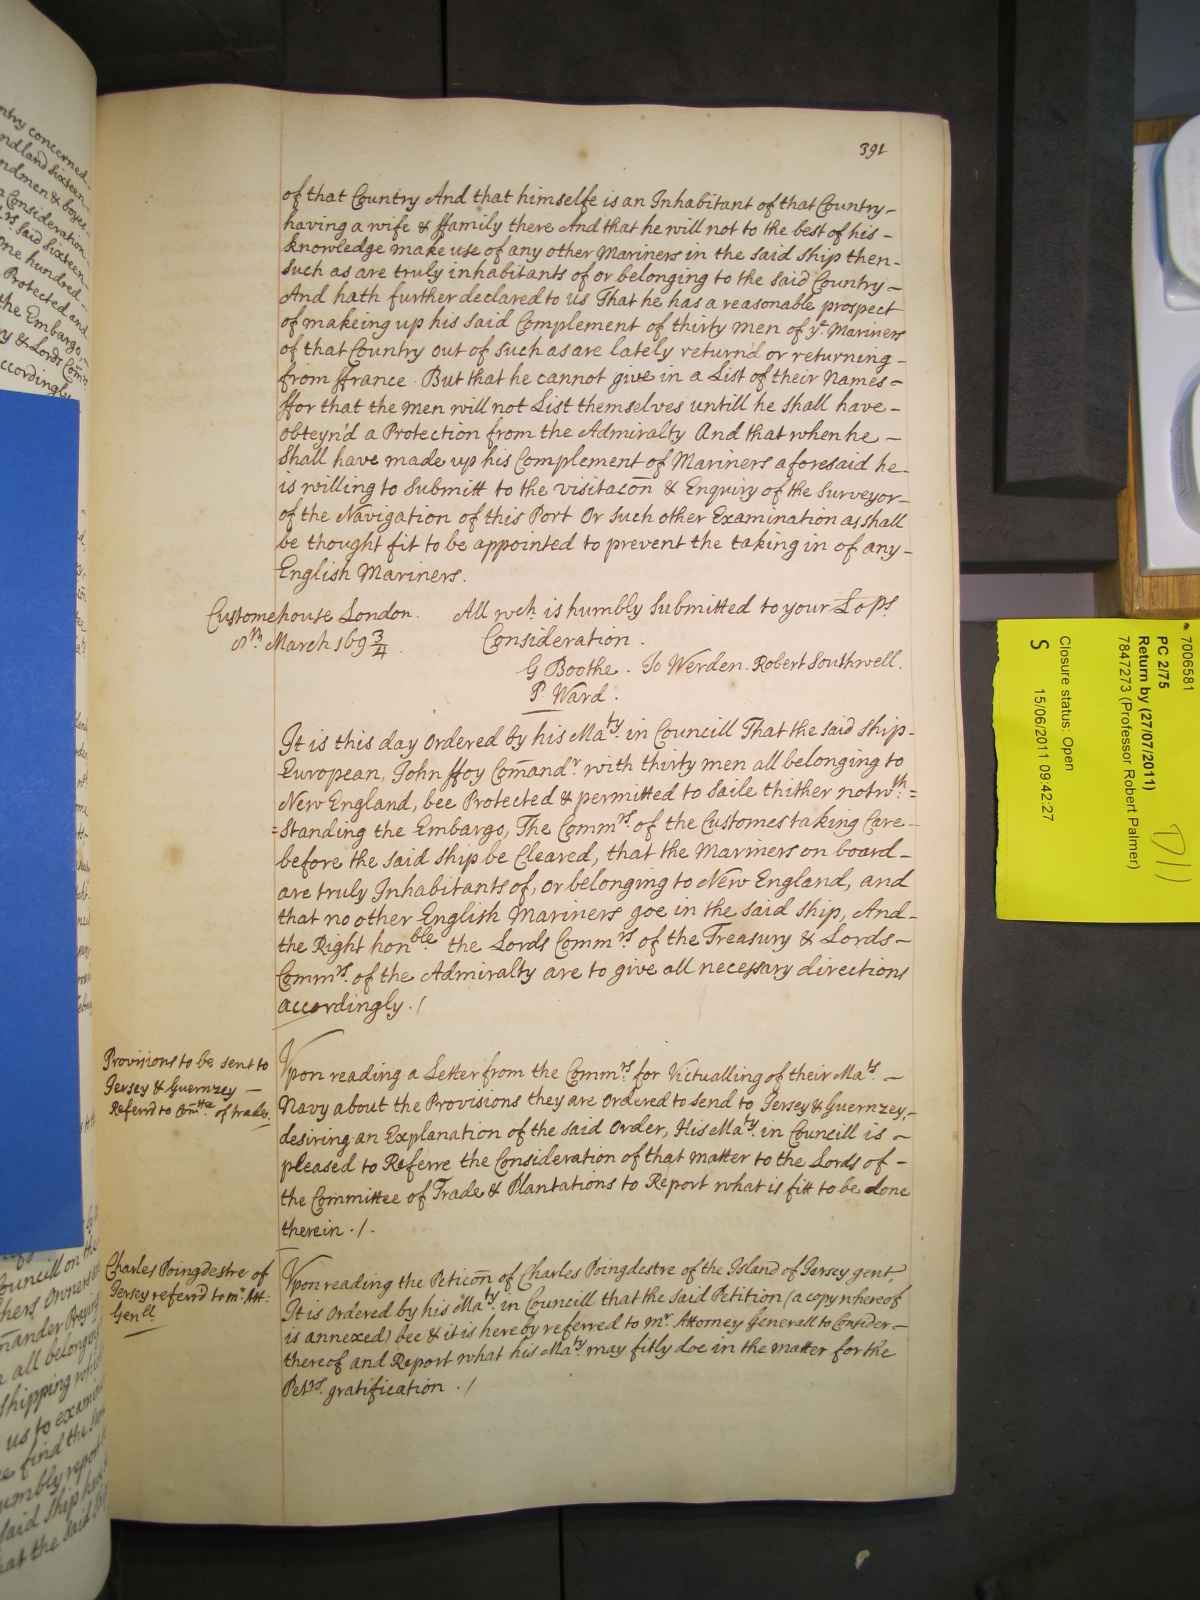 391
of that Country And that himselfe is an Inhabitant of that Country-
having a wife & ffamily there And that he will not to the best of his-
knowledge make use of any other Mariners in the said ship then-
such as are truly inhabitants of or belonging to the said Country-
And hath further declared to us That he has a reasonable prospect
of makeing up his said Complement of thirty men of ye Mariners
of that Country out of such as are lately return'd or returning-
from ffrance. But that he cannot give in a List of their Names-
ffor that the men will not List themselves untill he shall have-
obteyn'd a Protection from the Admiralty And that when he-
shall have made up his Complement of Mariners aforesaid he-
is willing to submitt to the visitacōn & Enquiry of the Surveyor-
of the Navigation of this Port Or such other Examination as shall
be thought fit to be appointed to prevent the taking in of any-
English Mariners.
Customehouse London. All wch is humbly Submitted to your Lops
8th March 169¾. Consideration.
G Boothe. Jo Werden. Robert Southwell.
P Ward.
It is this day Ordered by his Maty in Councill That the said ship-
European, John ffoy Com̄andr with thirty men all belonging to
New England, bee Protected & permitted to Saile thither notwth=
=standing the Embargo, The Commrs of the Customes taking Care-
before the said ship be Cleared, that the Mariners on board-
are truly Inhabitants of, or belonging to New England, and
that no other English Mariners goe in the said ship, And-
the Right honble the Lords Commrs of the Treasury & Lords-
Commrs of the Admiralty are to give all necessary directions
accordingly./
Provisions to be sent to
Jersey & Guernzey-
Referrd to Com̄ttee of trade.
Vpon reading a Letter from the Commrs for Victualling of their Mats-
Navy about the Provisions they are Ordered to send to Jersey & Guernzey,-
desiring an Explanation of the said Order, His Maty in Councill is-
pleased to Referre the Consideration of that matter to the Lords of-
the Committee of Trade & Plantations to Report what is fitt to be done
therein./.
Charles Poingdestre of
Jersey referrd to mr Att:
Genll
Vpon reading the Peticōn of Charles Poingdestre of the Island of Jersey gent,
It is Ordered by his Maty in Councill that the said Petition (a copy whereof
is annexed) bee & it is hereby referred to mr Attorney Generall to Consider-
thereof and Report what his Maty may fitly doe in the matter for the
Petrs gratification./
7006581
PC 2/75
Return by (27/07/2011)
7847273 (Professor Robert Palmer)
Closure status: Open
S 15/06/2011 09:42:27
D11